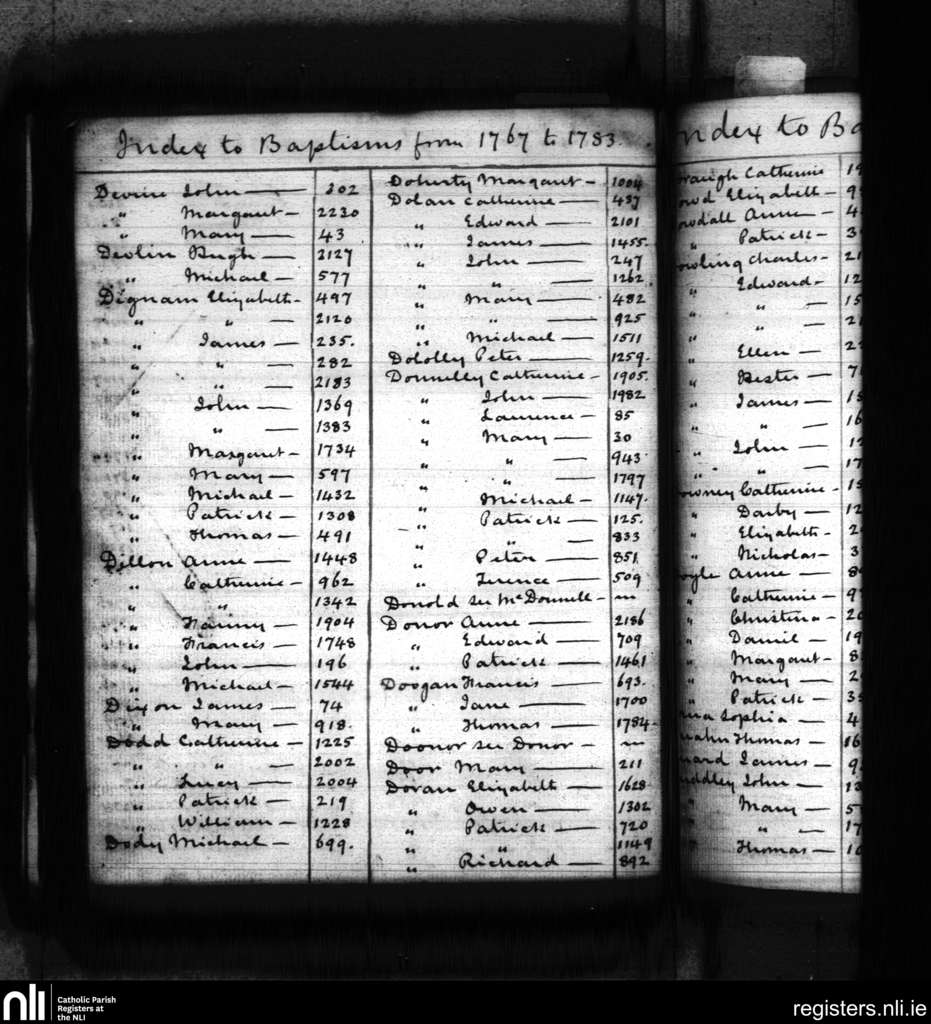 Index to Baptisms from 1767 to 1783.
Devine John — 202
" Margaret — 2230
" Mary — 43
Devlin Hugh — 2127
" Michael — 577
Dignam Elizabeth - 497
" " — 2120
" James — 235.
" " — 282
" " — 2183
" John — 1369
" " — 1383
" Margaret — 1734
" Mary — 597
" Michael — 1432
" Patrick — 1308
" Thomas — 491
Dillon Anne — 1448
" Catherine — 962
" " 1342
" Fanny — 1904
" Francis — 1748
" John — 196
" Michael — 1544
Dixon James — 74
" Mary — 918.
Dodd Catherine — 1225
" " — 2002
" Lucy — 2004
" Patrick — 219
" William — 1228
Dody Michael — 699.
Doherty Margaret — 1004
Dolan Catherine — 437
" Edward — 2101
" James — 1455.
" John — 247
" " — 1262
" Mary — 482
" " — 925
" Michael — 1511
Dololly Peter — 1259.
Donnelly Catherine — 1905.
" John — 1982
" Laurence — 85
" Mary — 30
" " — 943
" " — 1797
" Michael — 1147.
" Patrick — 125.
" " — 833
" Peter — 851
" Terence — 509
Donold see McDonnell — "
Donor Anne — 2186
" Edward — 709
" Patrick — 1461
Doogan Francis — 693.
" Jane — 1700
" Thomas — 1784
Doonor see Donor — "
Door Mary — 211
Doran Elizabeth — 1628
" Owen — 1302
" Patrick — 720
" " 1149
" Richard — 892
ndex to Ba
raugh Catherine 1
owd Elizabeth — 9
owdall Anne — 4
" Patrick — 3
owling Charles — 21
" Edward — 12
" " — 15
" " — 21
" Ellen — 2
" Hester — 7
" James — 15
" " — 16
" John — 12
" " — 17
owney Catherine — 15
" Darby — 12
" Elizabeth — 2
" Nicholas — 3
oyle Anne — 8
" Catherine — 9
" Christina — 20
" Daniel — 19
" Margaret — 8
" Mary — 2
" Patrick — 3
Sophia — 4
Thomas — 16
James — 9
ddley John — 13
" Mary — 5
" " — 17
" Thomas — 1
nli
Catholic Parish
Registers at
the NLI
registers.nli.ie